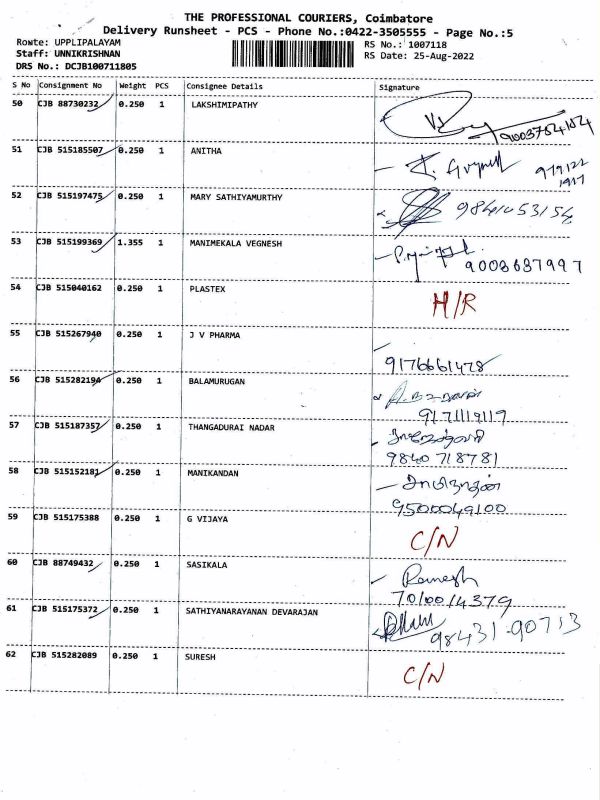 THE PROFESSIONAL COURIERS, Coimbatore
Delivery Runsheet - PCS - Phone No.:0422-3505555 - Page No.:5
Route: UPPLIPALAYAM
Staff: UNNIKRISHNAN
DRS No.: DCJB100711805
RS No.: 1007118
RS Date: 25-Aug-2022
S No Consignment No Weight PCS Consignee Details Signature
50 CJB 88730232 0.250 1 LAKSHIMIPATHY
51 CJB 515185507 0.250 1 ANITHA
52 CJB 515197475 0.250 1 MARY SATHIYAMURTHY
53 CJB 515199369 1.355 1 MANIMEKALA VEGNESH
9003637997
54 CJB 515040162 0.250 1 PLASTEX H/R
55 CJB 515267940 0.250 1 J V PHARMA
9176661478
56 CJB 515282194 0.250 1 BALAMURUGAN
9171119119
57 CJB 515187357 0.250 1 THANGADURAI NADAR
9840718781
58 CJB 515152181 0.250 1 MANIKANDAN
9500049100
59 CJB 515175388 0.250 1 G VIJAYA C/N
60 CJB 88749432 0.250 1 SASIKALA Ramesh
7010014379
61 CJB 515175372 0.250 1 SATHIYANARAYANAN DEVARAJAN
98431-90713
62 CJB 515282089 0.250 1 SURESH C/N